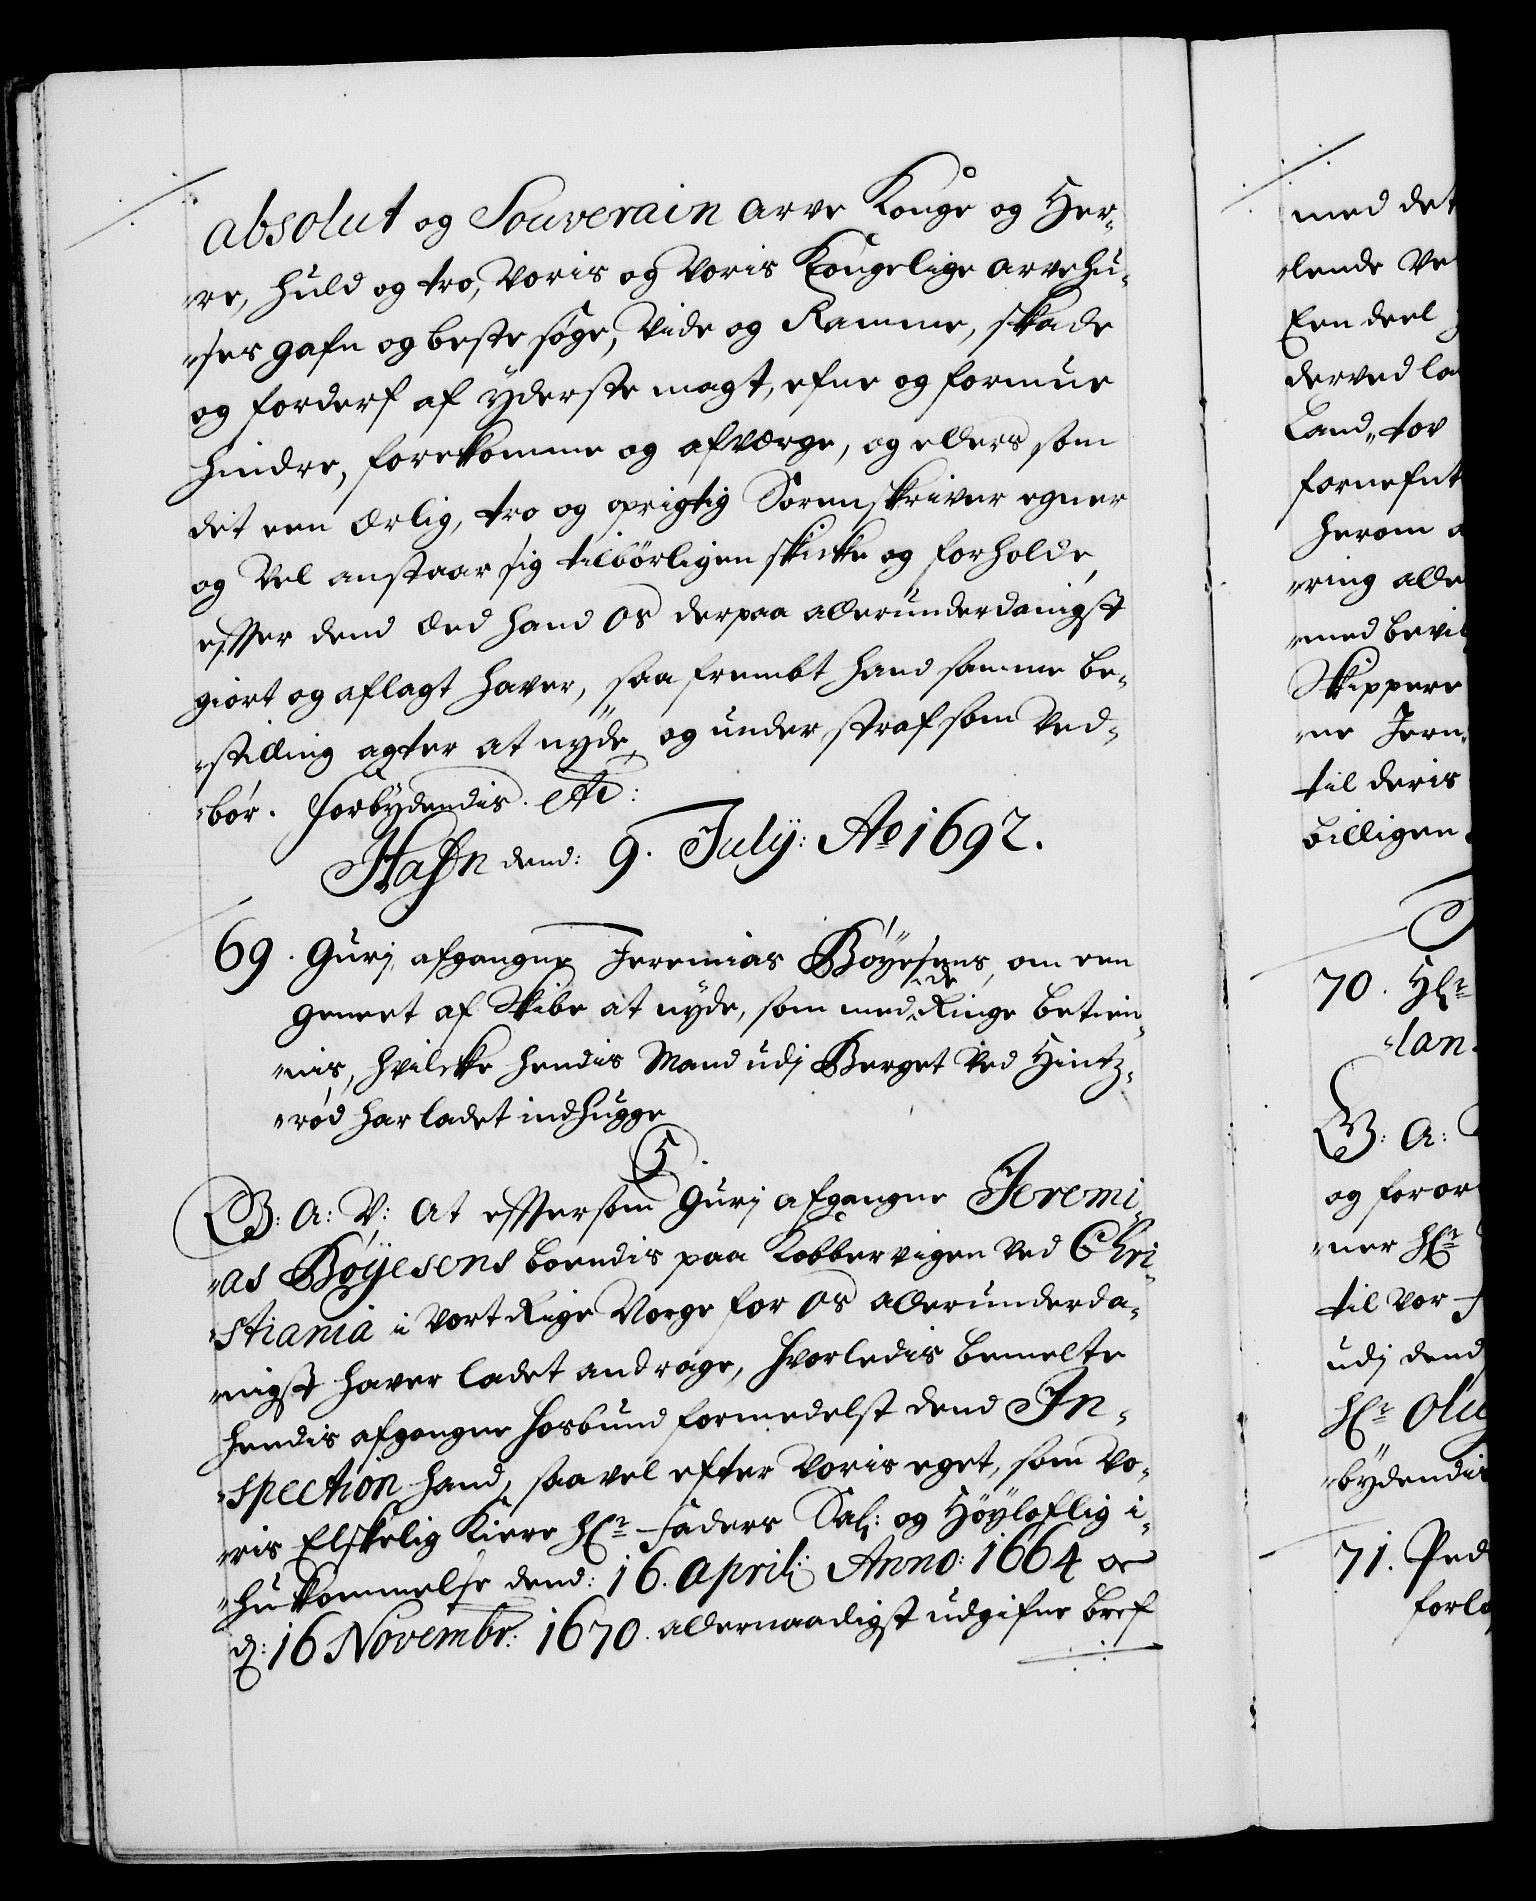 absolut og Souverain arve Konge og Her-
re, huld og tro, Voris og Voris Kongelige arvehu-
ses gafn og beste søge, Vide og Ramme, skade
og forderf af yderste magt, efne og formue
hindre, forekomme og afværge, og ellers som
det een ærlig, tro og oprigtig Sorenskriver egner
og Vel anstaar sig tilbørligen skicke og forholde,
efter dend æed hand os derpaa allerunderdanigst
giort og aflagt haver, saa frembt hand samme be-
stilling agter at nyde, og under straf som Ved-
bør. Forbydendis. etc:
Hafn dend: 9. July: Ao 1692.
69. Gurj afgangne Jeremias Böyesens, om een
geneet af Skibe at nyde, som med de Ringe betien-
nis, hvilcke hendis Mand udj Berget Ved Hintz-
rød har ladet indhugge
5
G: A: V: At eftersom Gurj afgangne Jeremi-
as Böyesens boendis paa Kobbervigen Ved Chri-
stiania i Vort Rige Norge for os allerunderda-
nigst haver ladet andrage, hvorledis bemelte
hendis afgangne Hosbund formedelst dend In-
spection hand, saavel efter Voris eget, som Vo-
ris Elskelig Kiere Hr Faders Sal: og Høyloflig i-
hukommelse dend: 16. April: Anno: 1664 oc
d: 16 Novembr: 1670. allernaadigst udgifne bref
med det
lende Ve
Een deel
derved la
Land, for
fornefnt
herom a
ring alle
med bevil
Skippere
ne Jern-
til deris
billigen
70. Hr
lan-
G: A:
og foror
ner Hr
til Vor
udj dend
Hr Olu
bydendis
71. Ped
forlo